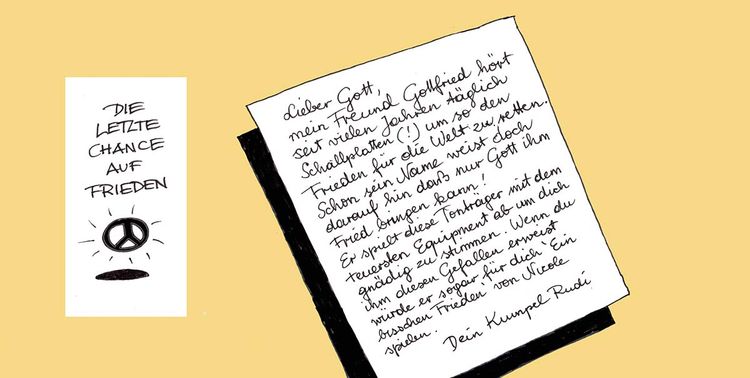 DIE
LETZTE
CHANCE
AUF
FRIEDEN
Lieber Gott,
mein Freund Gottfried hört
seit vielen Jahren täglich
Schallplatten (!) um so den
Frieden für die Welt zu retten.
Schon sein Name weist doch
darauf hin daß nur Gott ihm
Fried bringen kann!
Er spielt diese Tonträger mit dem
teuersten Equipment ab um dich
gnädig zu stimmen. Wenn du
ihm diesen Gefallen erweist
würde er sogar für dich 'Ein
bisschen Frieden' von Nicole
spielen.
Dein Kumpel Rudi